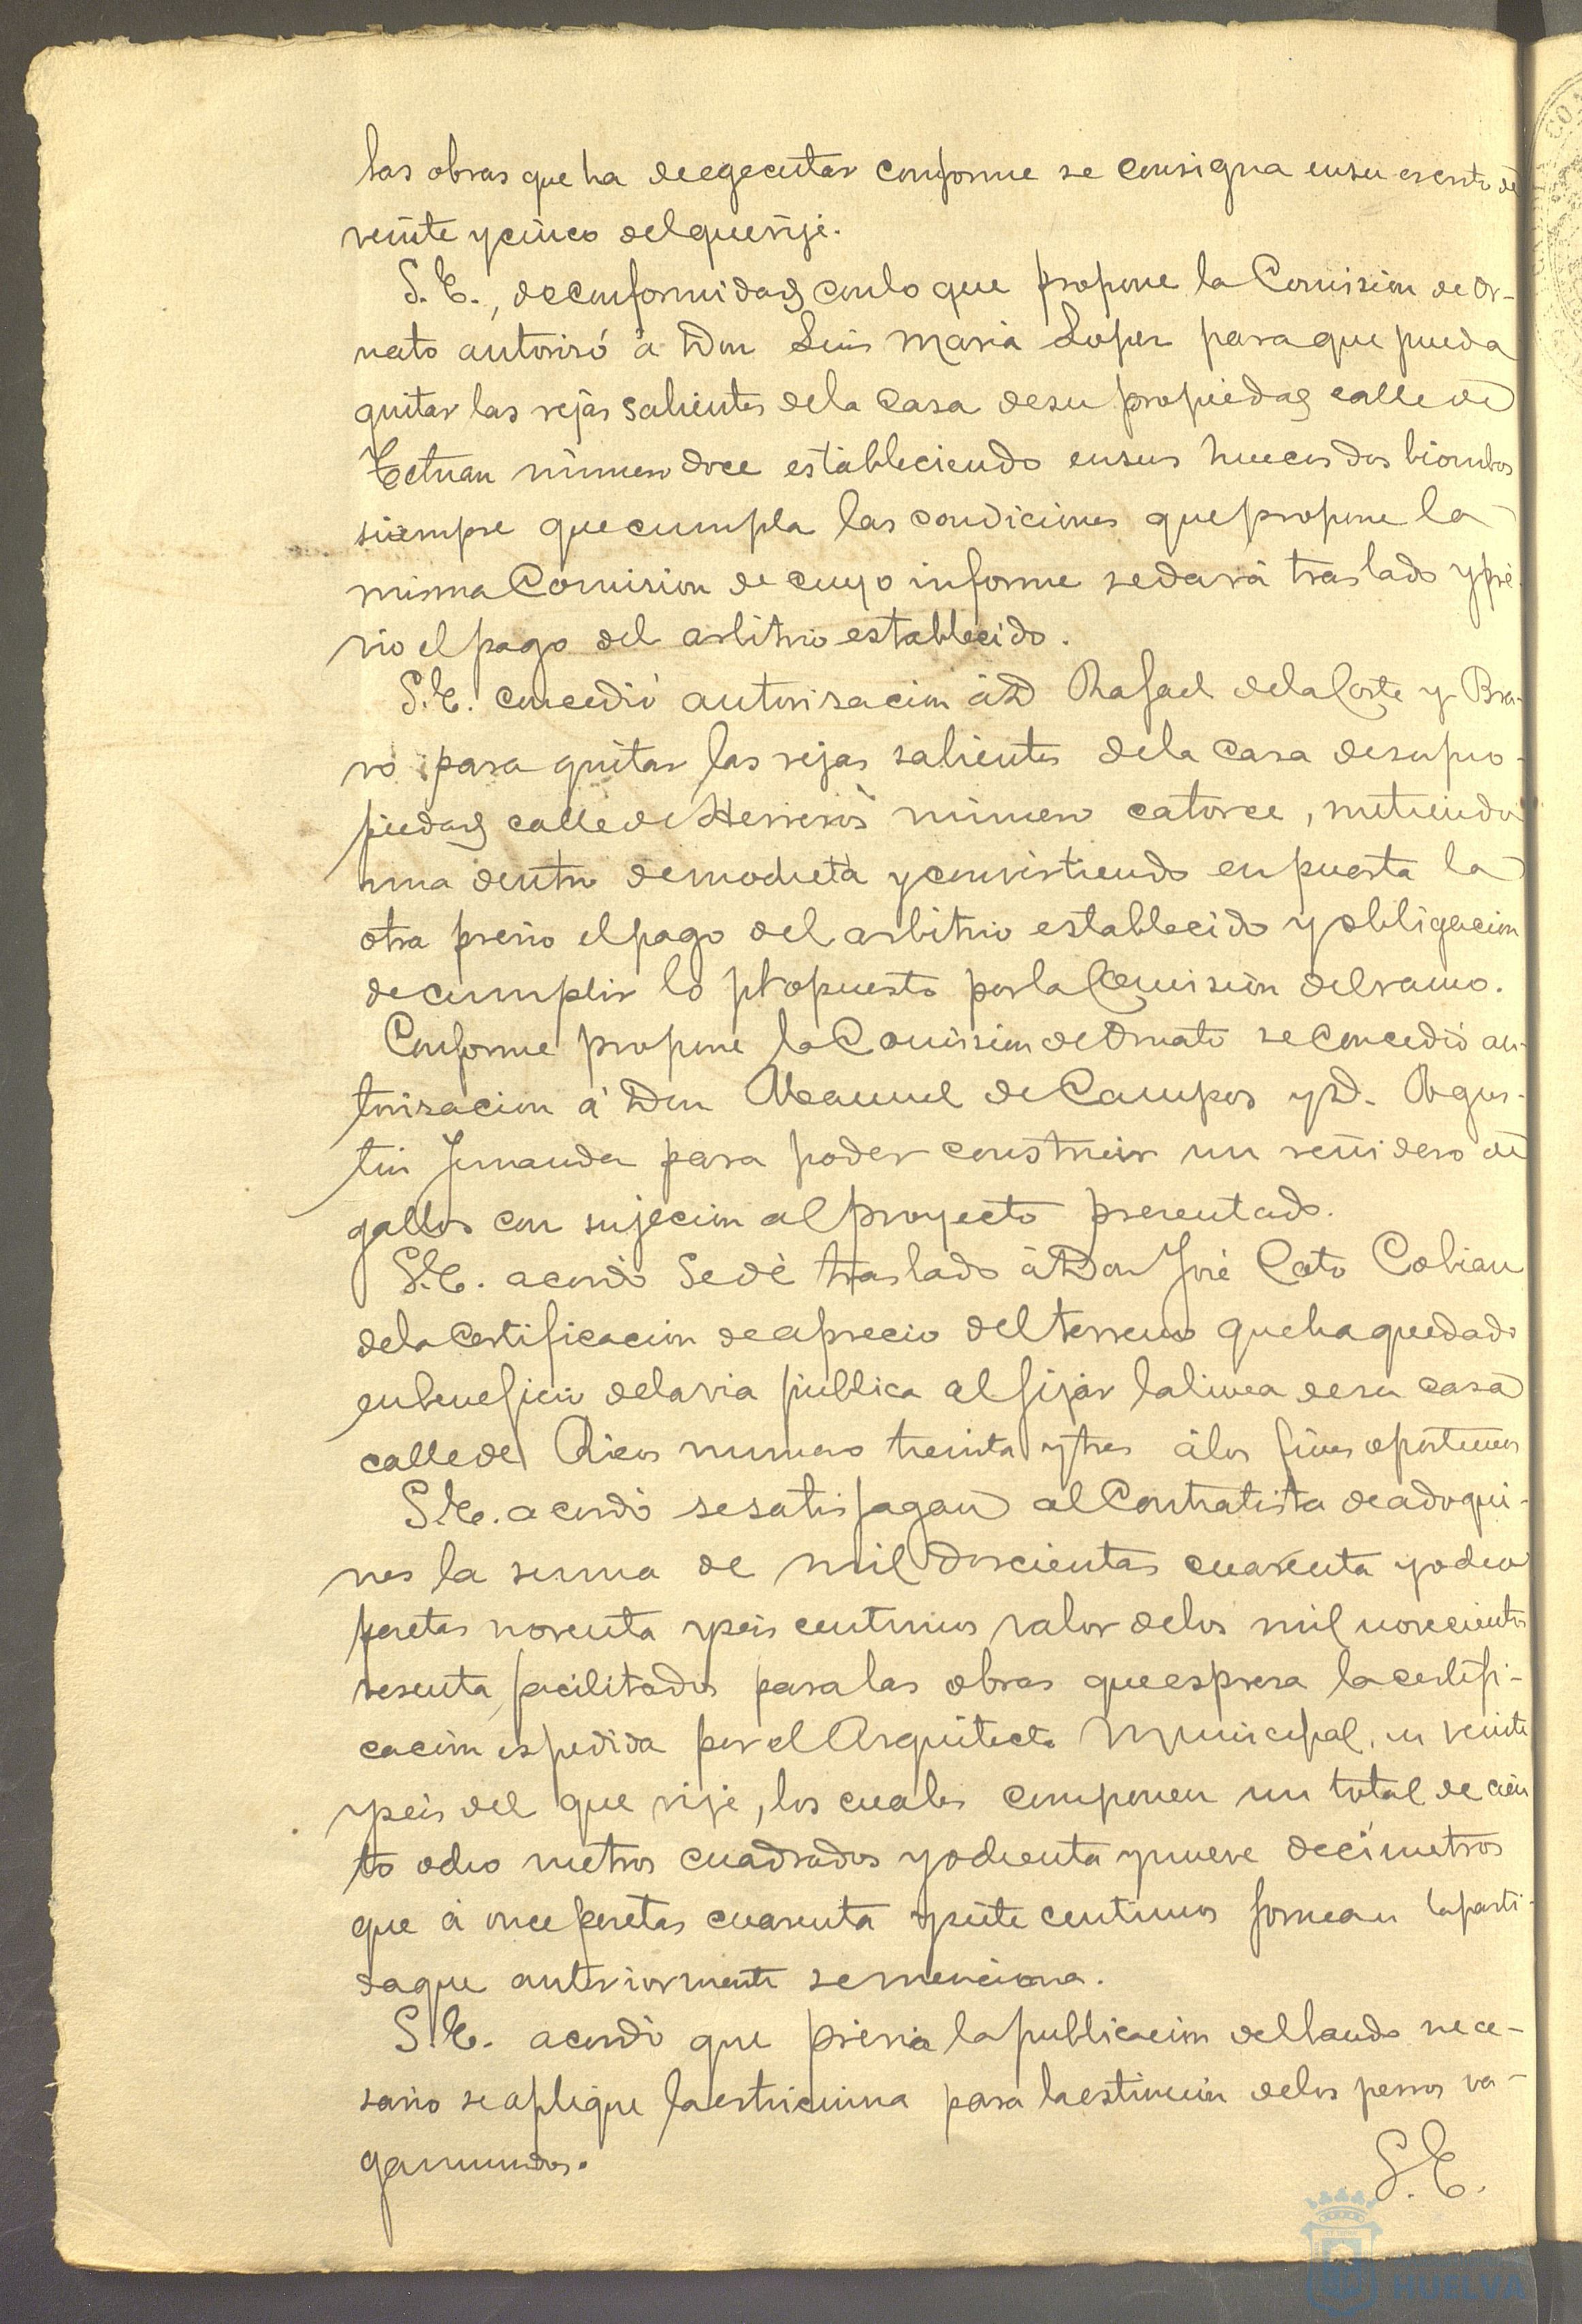 las obras que ha de egecutar conforme se consigna en su escrito de
veinte y cinco del que rije.
S. E., de conformidad con lo que propone la Comision de Or-
nato autorisó á Don Luis Maria Lopez para que pueda
quitar las rejas salientes de la Casa de su propiedad calle de
Tetuan número doce estableciendo en sus huecos dos biombos
siempre que cumpla las condiciones que propone la
misma Comision de cuyo informe se dará traslado y pré-
vio el pago del arbitrio establecido.
S. E. concedió autorisacion á D Rafael de la Corte y Bra-
vo para quitar las rejas salientes de la Casa de su pro-
piedad calle de Herreros número catorce, metiendo
una dentro de mocheta y convirtiendo en puerta la
otra prévio el pago del arbitrio establecido y obligacion
de cumplir lo propuesto por la Comision del ramo.
Conforme propone la Comision de Ornato se concedió au-
torisacion á Don Manuel de Campos y D. Agus-
tin para poder construir un reñidero de
gallos con sujecion al proyecto presentado.
S. E. acordó se dé traslado á Don José Coto Cobian
de la Certificacion de aprecio del terreno que ha quedado
en beneficio de la via pública al fijar la linea de su casa
calle de Ricos numero treinta y tres á los fines oportunos
S. E. acordó se satisfagan al Contratista de adoqui-
nes la suma de mil doscientas cuarenta y ocho
pesetas noventa y seis centimos valor de los mil novecientos
sesenta facilitados para las obras que espresa la certifi-
cacion espedida por el Arquitecto Municipal, en veinte
y seis del que rije, los cuales componen un total de cien-
to ocho metros cuadrados y ochenta y nueve decímetros
que á once pesetas cuarenta y siete centimos forman la parti-
da que anteriormente se menciona.
S. E. acordó que prévia la publicacion del bando nece-
sario se aplique la estricnina para la estincion de los perros va-
gamundos.
S. E.
HUELVA